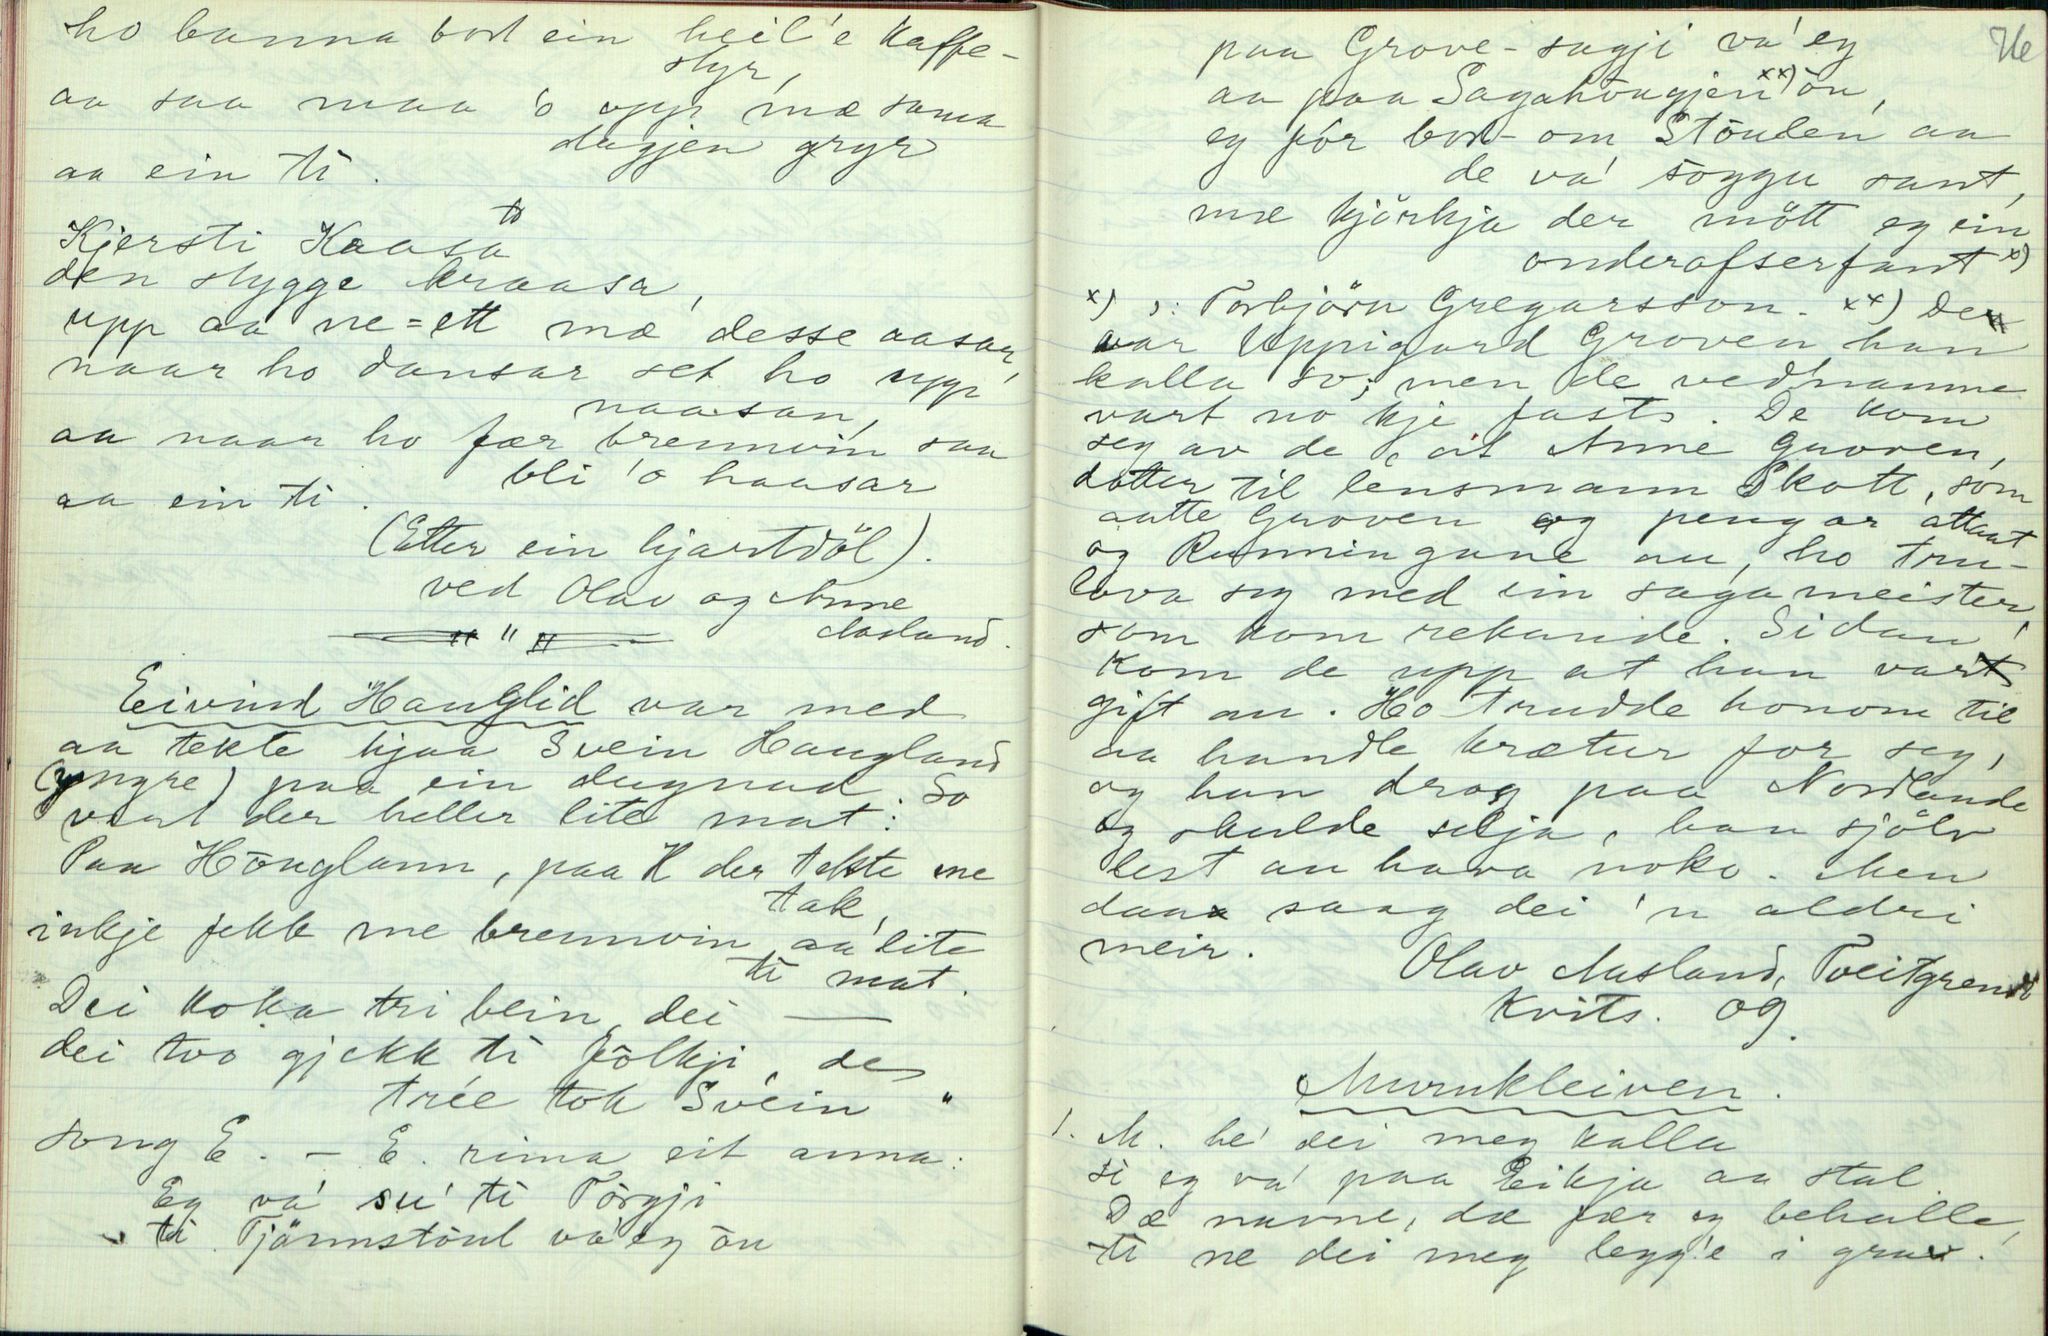 ho banna bort ein heil'e kaffe-
styr,
aa saa maa 'o upp mæ sama
dagjen gryr
aa ein ti.
Kjersti Kaasa
den stygge kraasa,
upp aa ne=ett mæ desse aasar,
naar ho dansar set ho upp
naasan,
aa naar ho fær brennvin saa
bli 'o haasar
aa ein ti.
(Etter ein hjartdöl).
ved Olav og Anne
Aasland.
Eivind Hauglid var med
aa tekte hjaa Svein Haugland
(yngre) paa ein dugnad. So
vart der heller lite mat:
Paa Hōuglann, paa H der tekte me
tak,
inkje fekk me brennvin, aa lite
ti mat.
Dei koka tri bein, dei —
dei tvo gjekk ti fōlkji, de
trée tok Svein "
song E. — E. rima eit anna:
Eg va' su' ti Tōrgji
ti Tjönnstōul va' eg ōu
76
paa Grove-sagji va' eg
aa paa Sagahougjen xx) ōu,
eg fór bort-om Stōulen aa
de va' soggu sant,
me kjörkja der mött eg ein
onderofserfant x)
x) ɔ: Torbjörn Gregarsson. xx) De
var Uppigard Groven han
kalla so; men de vednamne
vart no kje fast. De kom
seg av de, at Anne Groven,
dotter til lensmann Skott, som
aatte Groven og pengar attaat
og Runningane au, ho tru-
lova seg med ein sagameister,
som kom rekande. Sidan
kom de upp at han vart
gift au. Ho trudde honom til
aa handle krætur for seg,
og han drog paa Nordlande
og skulde selja, han sjölv
lest au hava noko. Men
daa saag dei 'n aldri
meir.
Olav Aasland, Tveitgrend
Kvits. og.
Murukleiven.
1. M. he' dei meg kalla
si eg va' paa Eikja aa stal
Dæ navne, dæ fær eg behalle,
ti ne dei meg legg'e i grav.